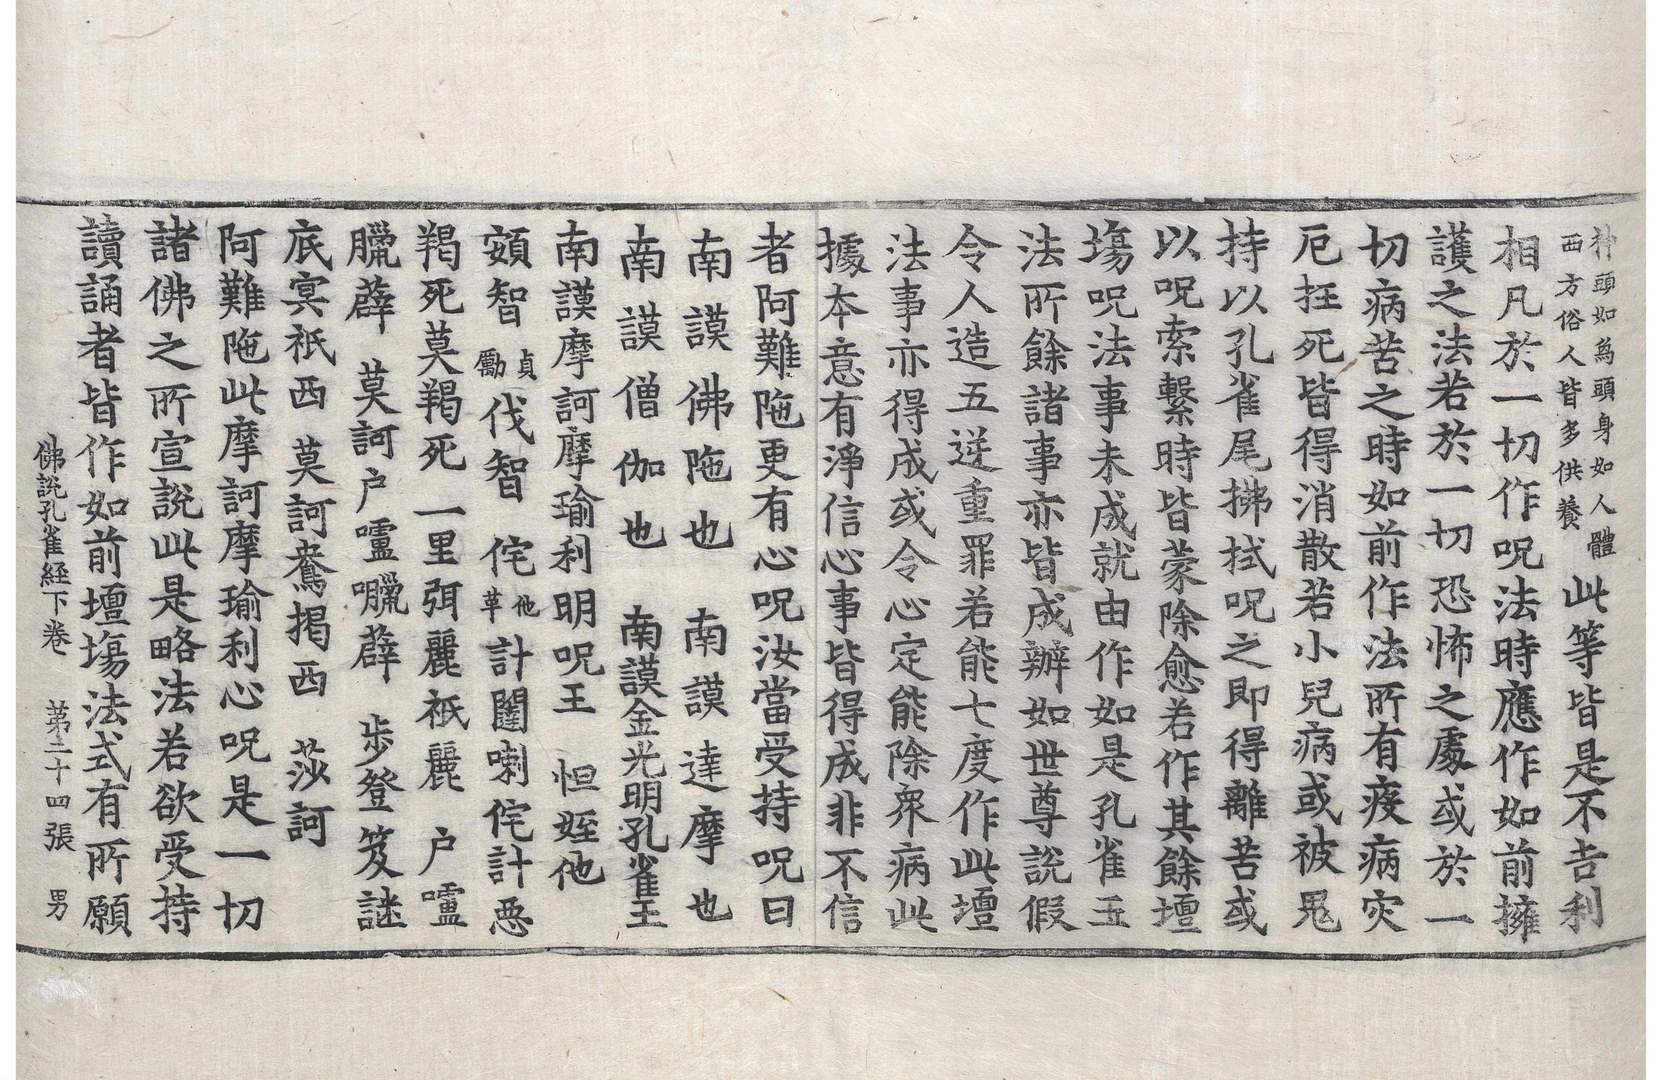 神頭如爲頭身如人體
西方俗人皆多供養
此等皆是不吉利
相凡於一切作呪法時應作如前擁
護之法若於一切恐怖之處或於一
切病苦之時如前作法所有疾病灾
厄抂死皆得消散若小兒病或被鬼
持以孔雀尾拂拭呪之即得離苦或
以呪索繫時皆蒙除愈若作其餘壇
塲呪法事未成就由作如是孔雀王
法所餘諸事亦皆成辦如世尊說假
令人造五逆重罪若能七度作此壇
法事亦得成或令心定能除衆病此
據本意有淨信心事皆得成非不信
者阿難陁更有心呪汝當受持呪曰
南謨佛陁也 南謨達摩也
南謨僧伽也 南謨金光明孔雀王
南謨摩訶摩瑜利明呪王 怛姪他
頞智貞勵伐智 侘他革計闥喇侘計惡
羯死莫羯死 一里弭麗祇麗 户嚧
臘薜 莫訶户嚧囇薜 步登笈謎
底寞祇西 莫訶鴦揭西 莎訶
阿難陁此摩訶摩瑜利心呪是一切
諸佛之所宣說此是略法若欲受持
讀誦者皆作如前壇塲法式有所願
佛說孔雀経下卷 苐二十四張 男